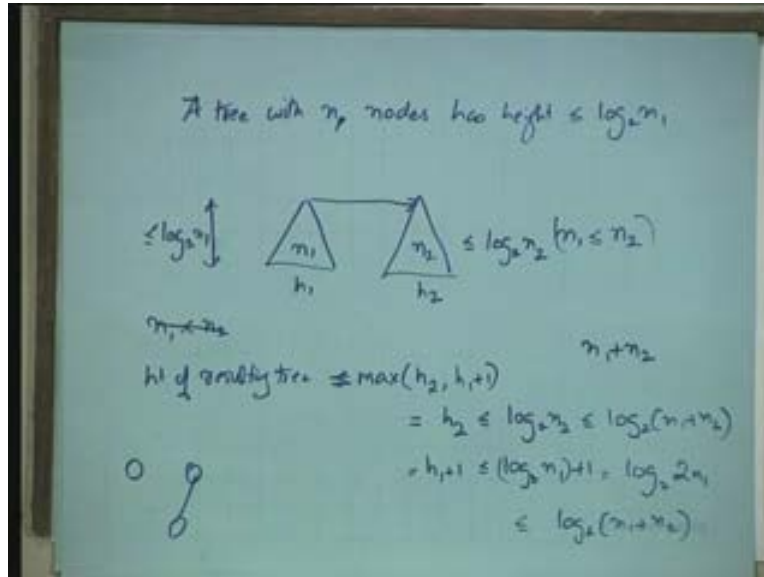 A tree with n₁ nodes has height ≤ log₂n₁
≤log₂n₁ n₁ n₂ ≤ log₂n₂ (n₁ ≤ n₂)
h₁ h₂
n₁<n₂
n₁+n₂
ht of resulting tree ≤ max(h₂, h₁+1)
= h₂ ≤ log₂n₂ ≤ log₂(n₁+n₂)
= h₁+1 ≤ (log₂n₁)+1 = log₂2n₁
≤ log₂(n₁+n₂)